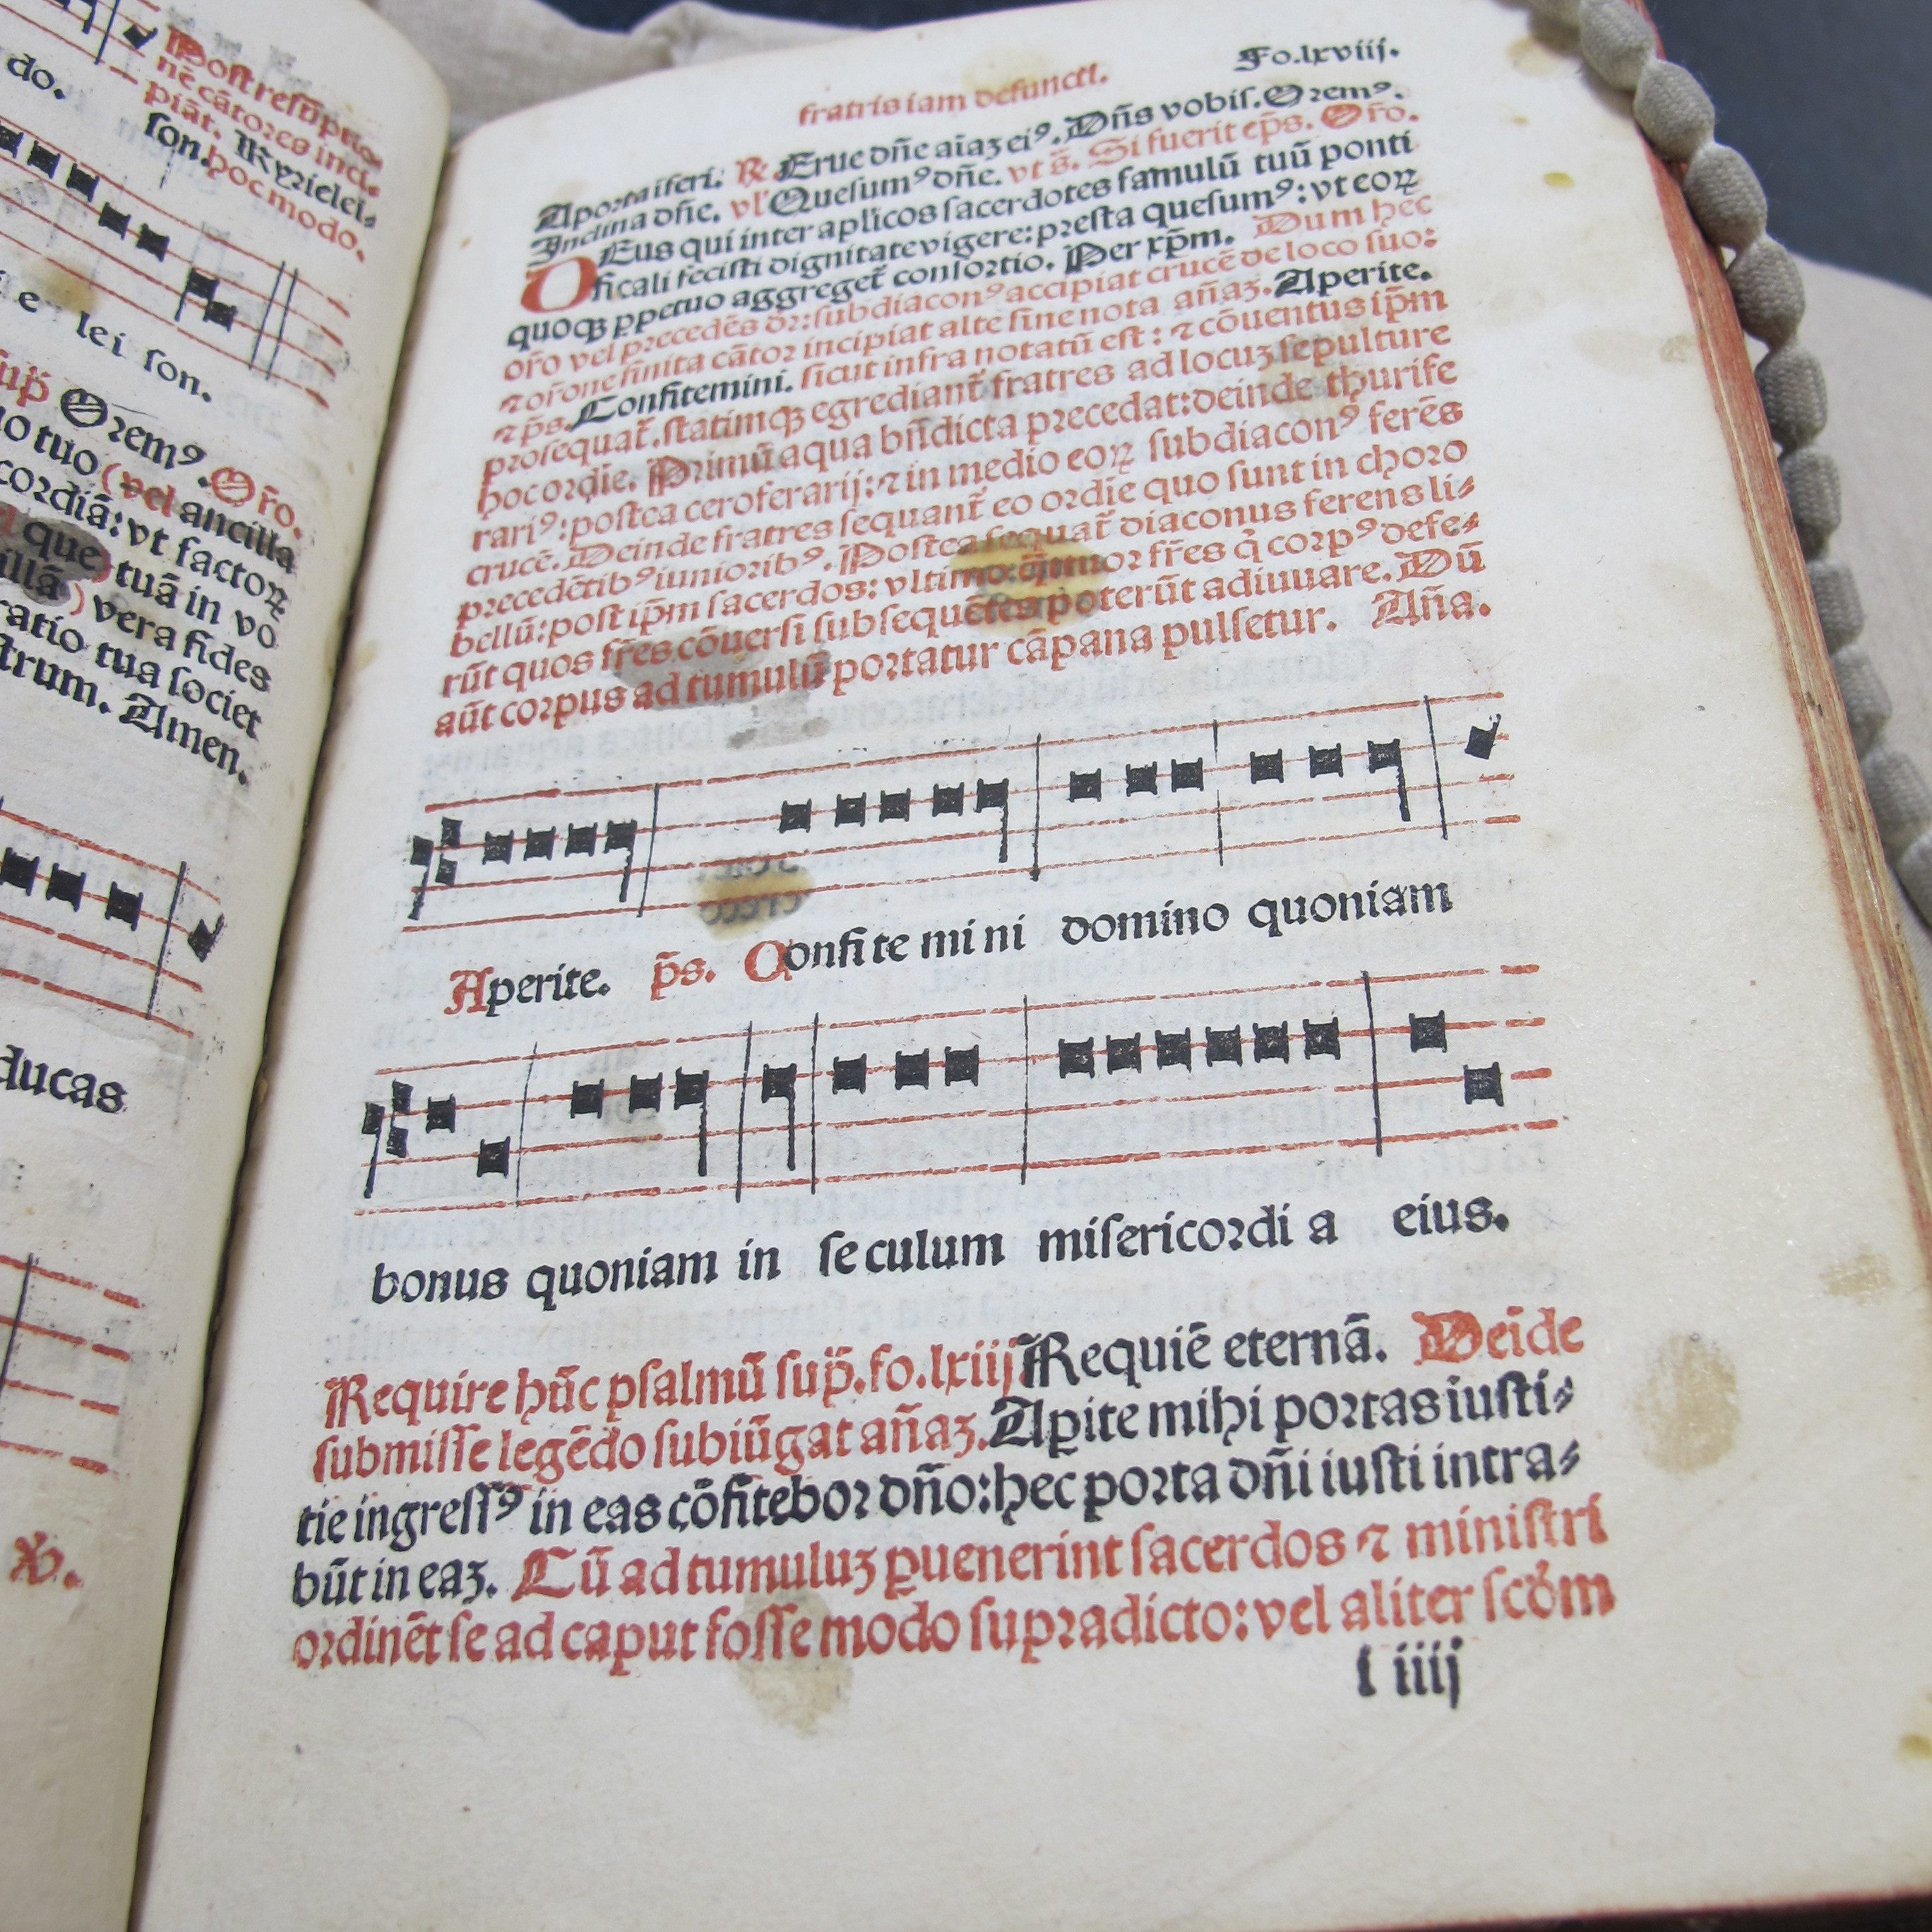 do.
Post resūptio-
nē cātores inci-
piāt. Kyrielei-
son. hoc modo.
e lei son.
sup̄ Orem⁹. Or̄o.
tuo (vel ancilla
cordiā: vt factoꝝ
que) tuā in vo
illā) vera fides
ratio tua societ
strum. Amen.
ducas
fratris iam defuncti.
Fo.lxviij.
A porta iferi. ℞ Erue dñe aīaꝫ ei⁹. Dñs vobiſ. Orem⁹.
Inclina dñe. vl' Queſum⁹ dñe. vt s̄. Si fuerit ep̄s. Or̄o.
DEus qui inter apl'icos ſacerdotes famulū tuū ponti
ficali feciſti dignitate vigere: preſta queſum⁹: vt eoꝝ
quoqꝫ ꝑpetuo aggreget̄ conſortio. Per xp̄m. Dum hec
or̄o vel precedēs dr̄: ſubdiacon⁹ accipiat crucē de loco ſuo:
⁊ or̄one finita cātor incipiat alte ſine nota añaꝫ. Aperite.
⁊ p̄s. Confitemini. ſicut infra notatū eſt: ⁊ cōuentus ip̄m
proſequat̄. ſtatimqꝫ egrediant̄ fratres ad locuꝫ ſepulture
hoc ordie. Primū aqua bn̄dicta precedat: deinde thurife
rari⁹: poſtea ceroferarij: ⁊ in medio eoꝝ ſubdiacon⁹ ferēs
crucē. Deinde fratres ſequant̄ eo ordīe quo ſunt in choro
precedētib⁹ iuniorib⁹. Poſtea ſequat̄ diaconus ferens li-
bellū: poſt ip̄m ſacerdos: vltimo: q̄tuor fr̄es q̇ corp⁹ defe-
rūt quos fr̄es cōuerſi ſubſequētes poterūt adiuuare. Dū
aūt corpus ad tumulū portatur cāpana pulſetur. Añа.
Aperite. p̄s. Confite mi ni domino quoniam
bonus quoniam in ſe culum miſericordi a eius.
Require hūc pſalmū ſup̄. fo. lxiij Requiē eternā. Deīde
ſubmiſſe legēdo ſubiūgat añaꝫ. Aꝑite mihi portas iuſti-
tie ingreſſ⁹ in eas cōfitebor dn̄o: hec porta dn̄i iuſti intra-
būt in eaꝫ. Cū ad tumuluꝫ ꝑuenerint ſacerdos ⁊ miniſtri
ordinēt ſe ad caput foſſe modo ſupradicto: vel aliter ſcōm
l iiij